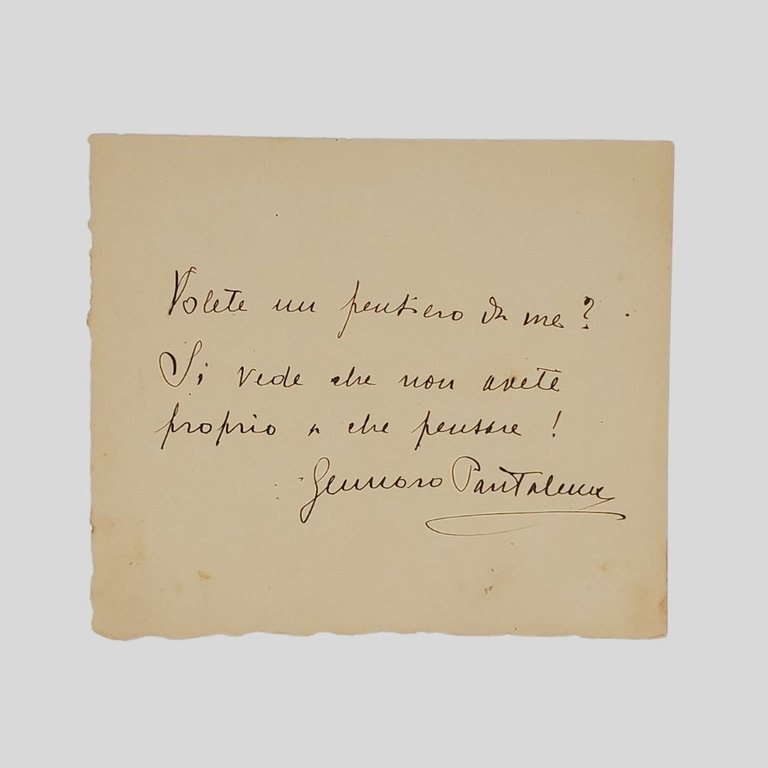 Volete un pensiero da me?
Si vede che non avete
proprio a che pensare!
Gennaro Pantalena